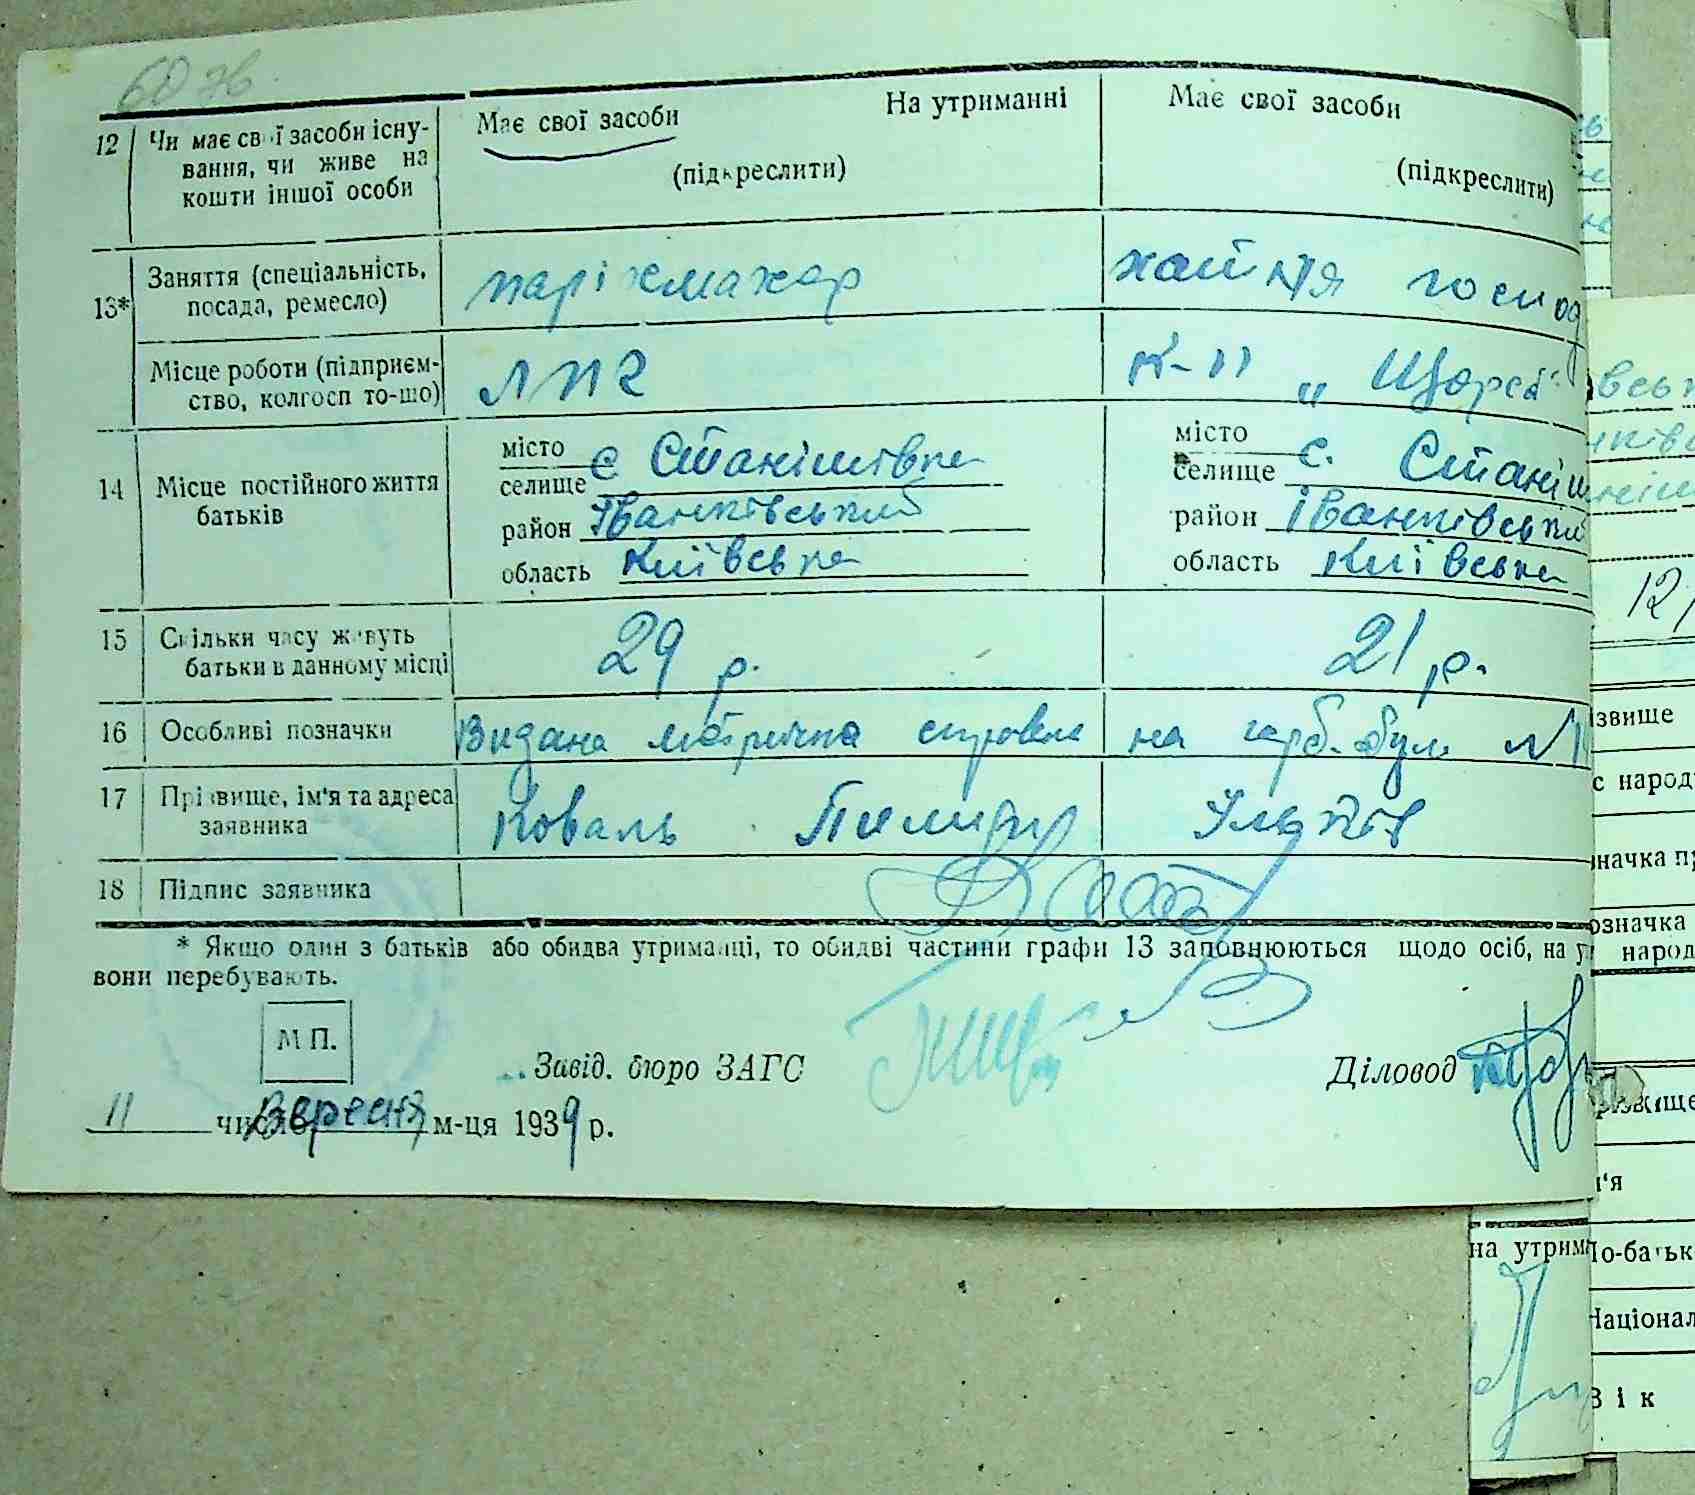 60 зв.
12 Чи має свої засоби існу- Має свої засоби На утриманні Має свої засоби
вання, чи живе на (підкреслити) (підкреслити)
кошти іншої особи
13* Заняття (спеціальність, парікмахер хайня господ
посада, ремесло)
Місце роботи (підприєм- К-п „Щорса"
ство, колгосп то-що)
14 Місце постійного життя
батьків
місто
селище с Станішівка
район Іванківський
область Київська
місто
селище с. Станіш
район Іванківський
область Київська
15 Скільки часу живуть 29 р. 21 р.
батьки в данному місці
16 Особливі позначки Видана метрична справка на герб. бум №
17 Прізвище, ім'я та адреса Коваль
заявника
18 Підпис заявника
* Якщо один з батьків або обидва утриманці, то обидві частини графи 13 заповнюються щодо осіб, на у
вони перебувають.
М П.
Завід. бюро ЗАГС Діловод
11 числа Вересня м-ця 1939 р.
звище
с народ
начка п
означка
народ
ізвище
м'я
на утрима
По-батьк
Націонал
В і к